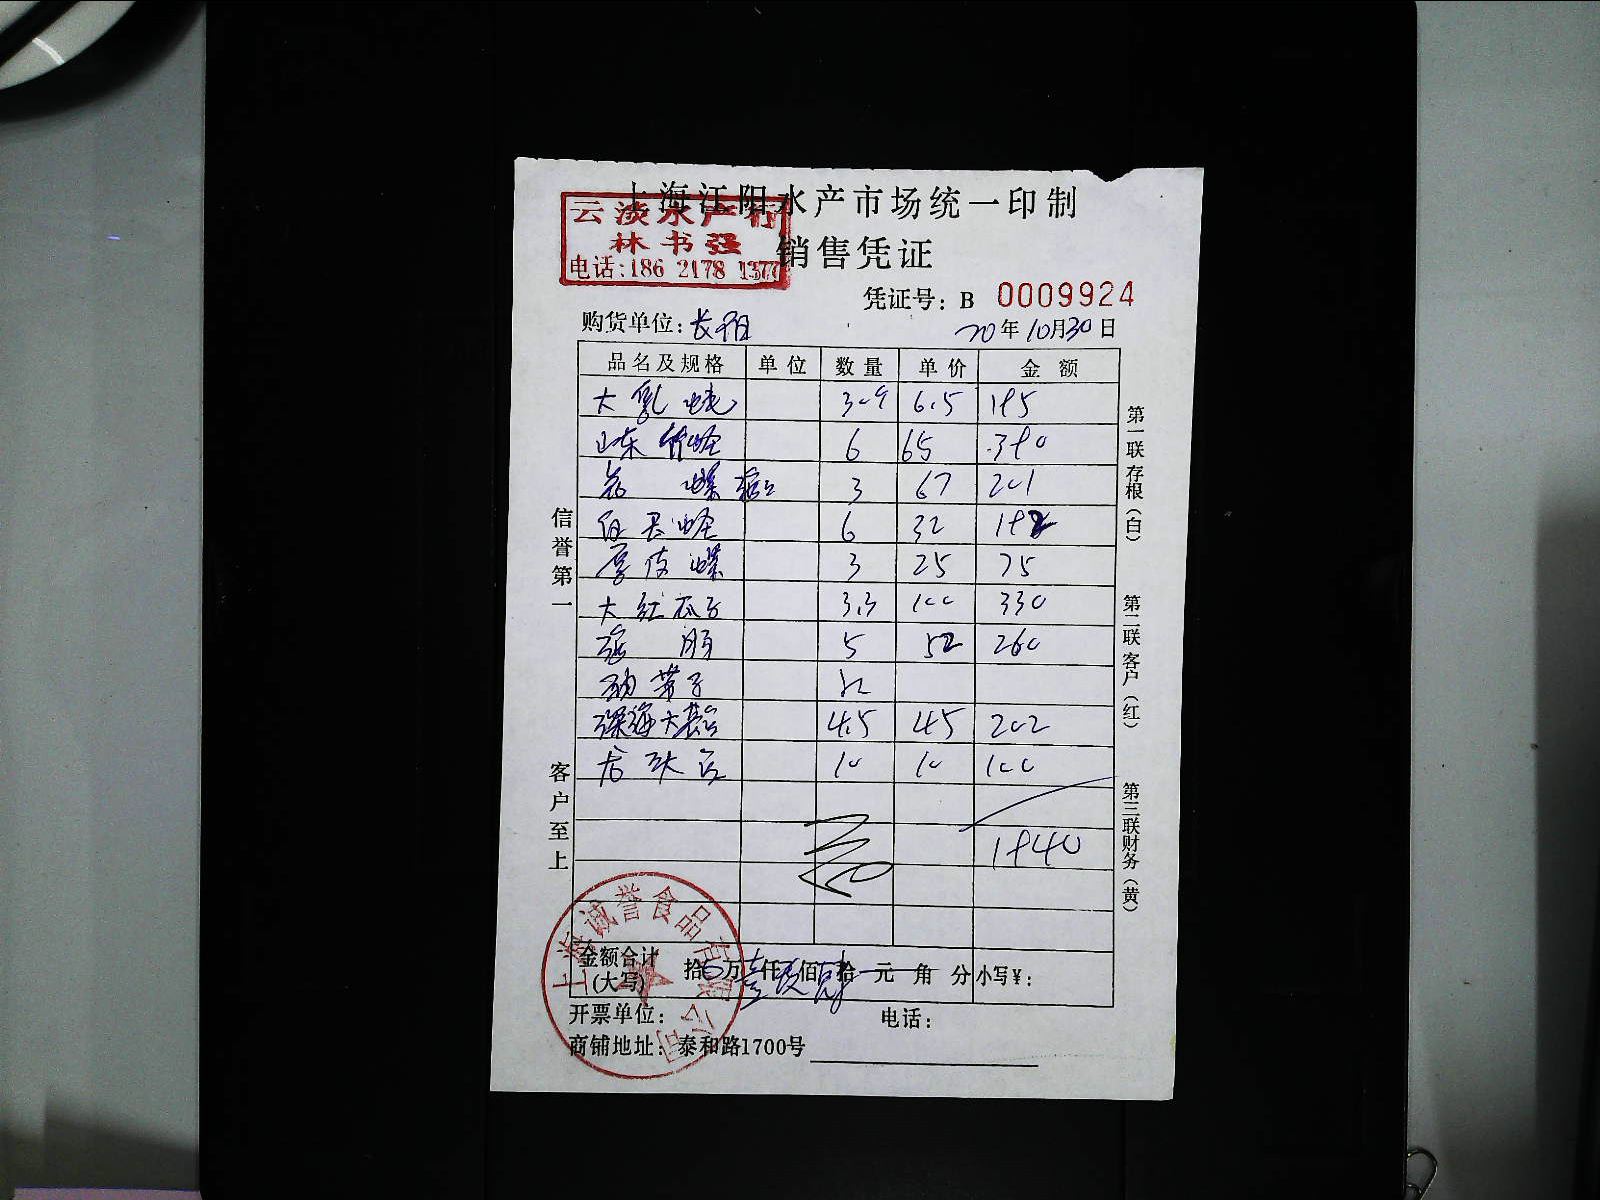 上海江阳水产市场统一印制
云淡水产行
林书强
电话:186 2178 1377
销售凭证
凭证号: B 0009924
购货单位: 长阳
20年10月30日
品名及规格 单位 数量 单价 金额
大乳 6.5 195
山东竹蛏 6 65 390
螺 3 67 201
蛏 6 32 192
厚皮螺 3 25 75
大红瓜子 3.3 100 330
5 52 260
子
深海大 4.5 45 202
10 10 100
1940
金额合计(大写) 拾 万 仟 佰 拾 元 角 分 小写¥:
开票单位: 电话:
商铺地址: 泰和路1700号
信誉第一
客户至上
第一联存根(白)
第二联客户(红)
第三联财务(黄)
上海诚誉食品有限公司